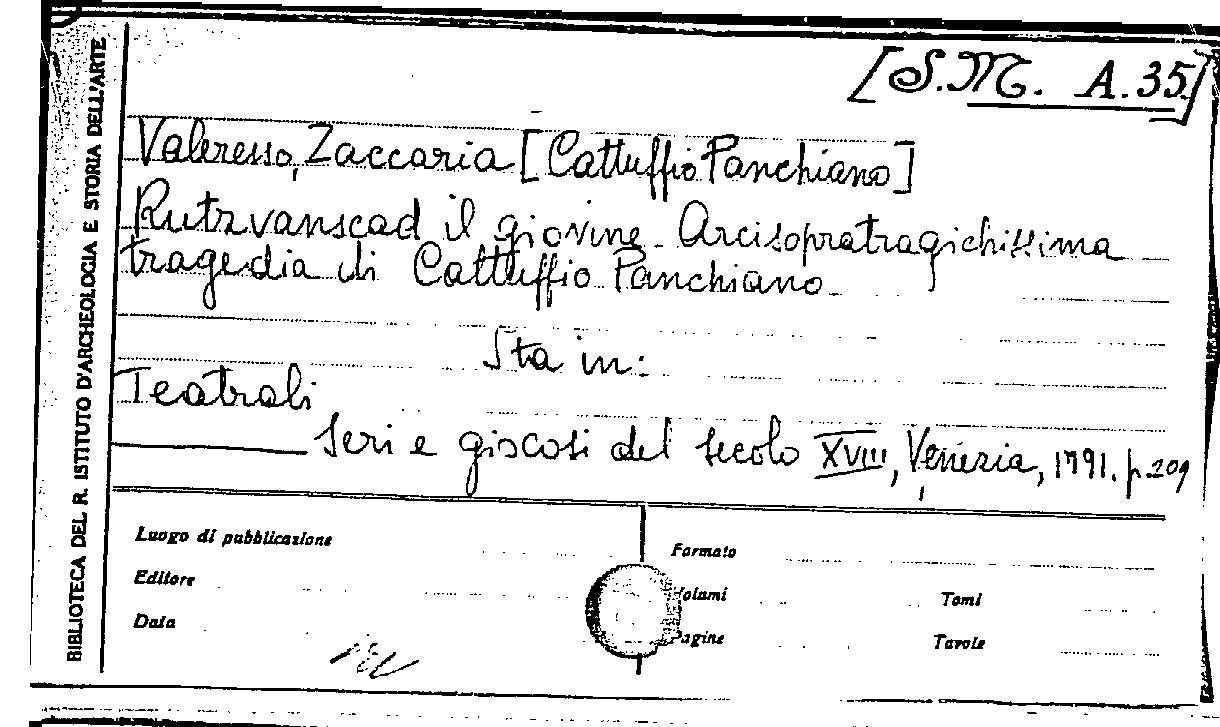 BIBLIOTECA DEL R. ISTITUTO D'ARCHEOLOGIA E STORIA DELL'ARTE
[S.M. A.35.]
Valeresso, Zaccaria [Cattuffio Panchiano]
Rutzvanscad il giovine. Arcisopratragichissima
tragedia di Cattuffio Panchiano.
Sta in:
Teatrali
——— seri e giocosi del secolo XVIII, Venezia, 1791. p. 209
Luogo di pubblicazione
Formato
Editore
Volumi
Tomi
Data
Pagine
Tavole